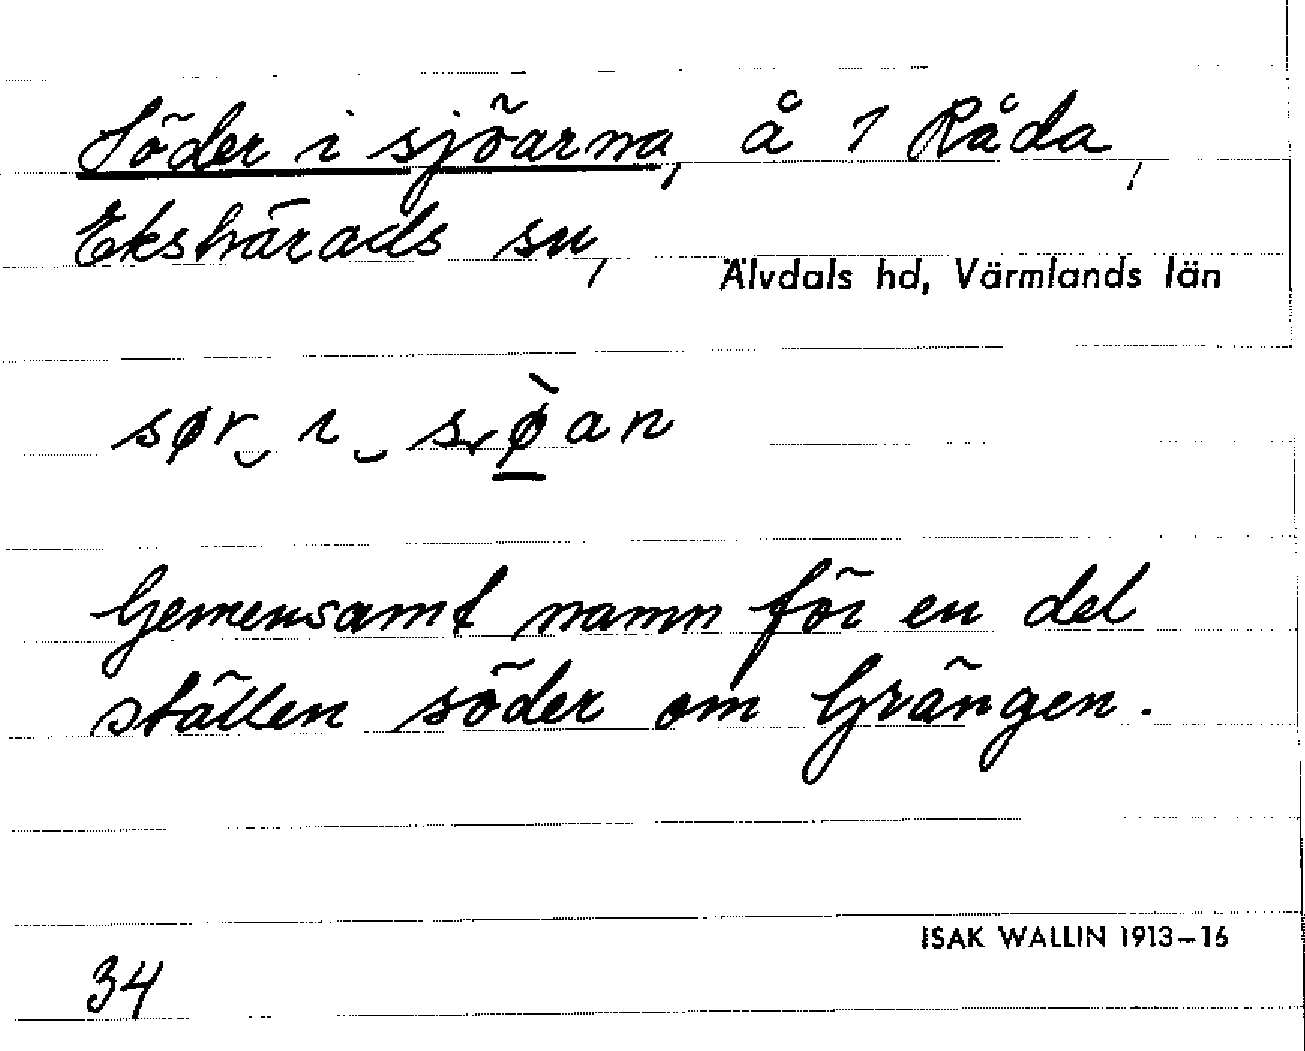 Söder i sjöarna, å 1 Råda,
Ekshärads sn,
Älvdals hd, Värmlands län
sør‿ i‿ s˯ø̀an
Gemensamt namn för en del
ställen söder om Grängen.
ISAK WALLIN 1913–16
34